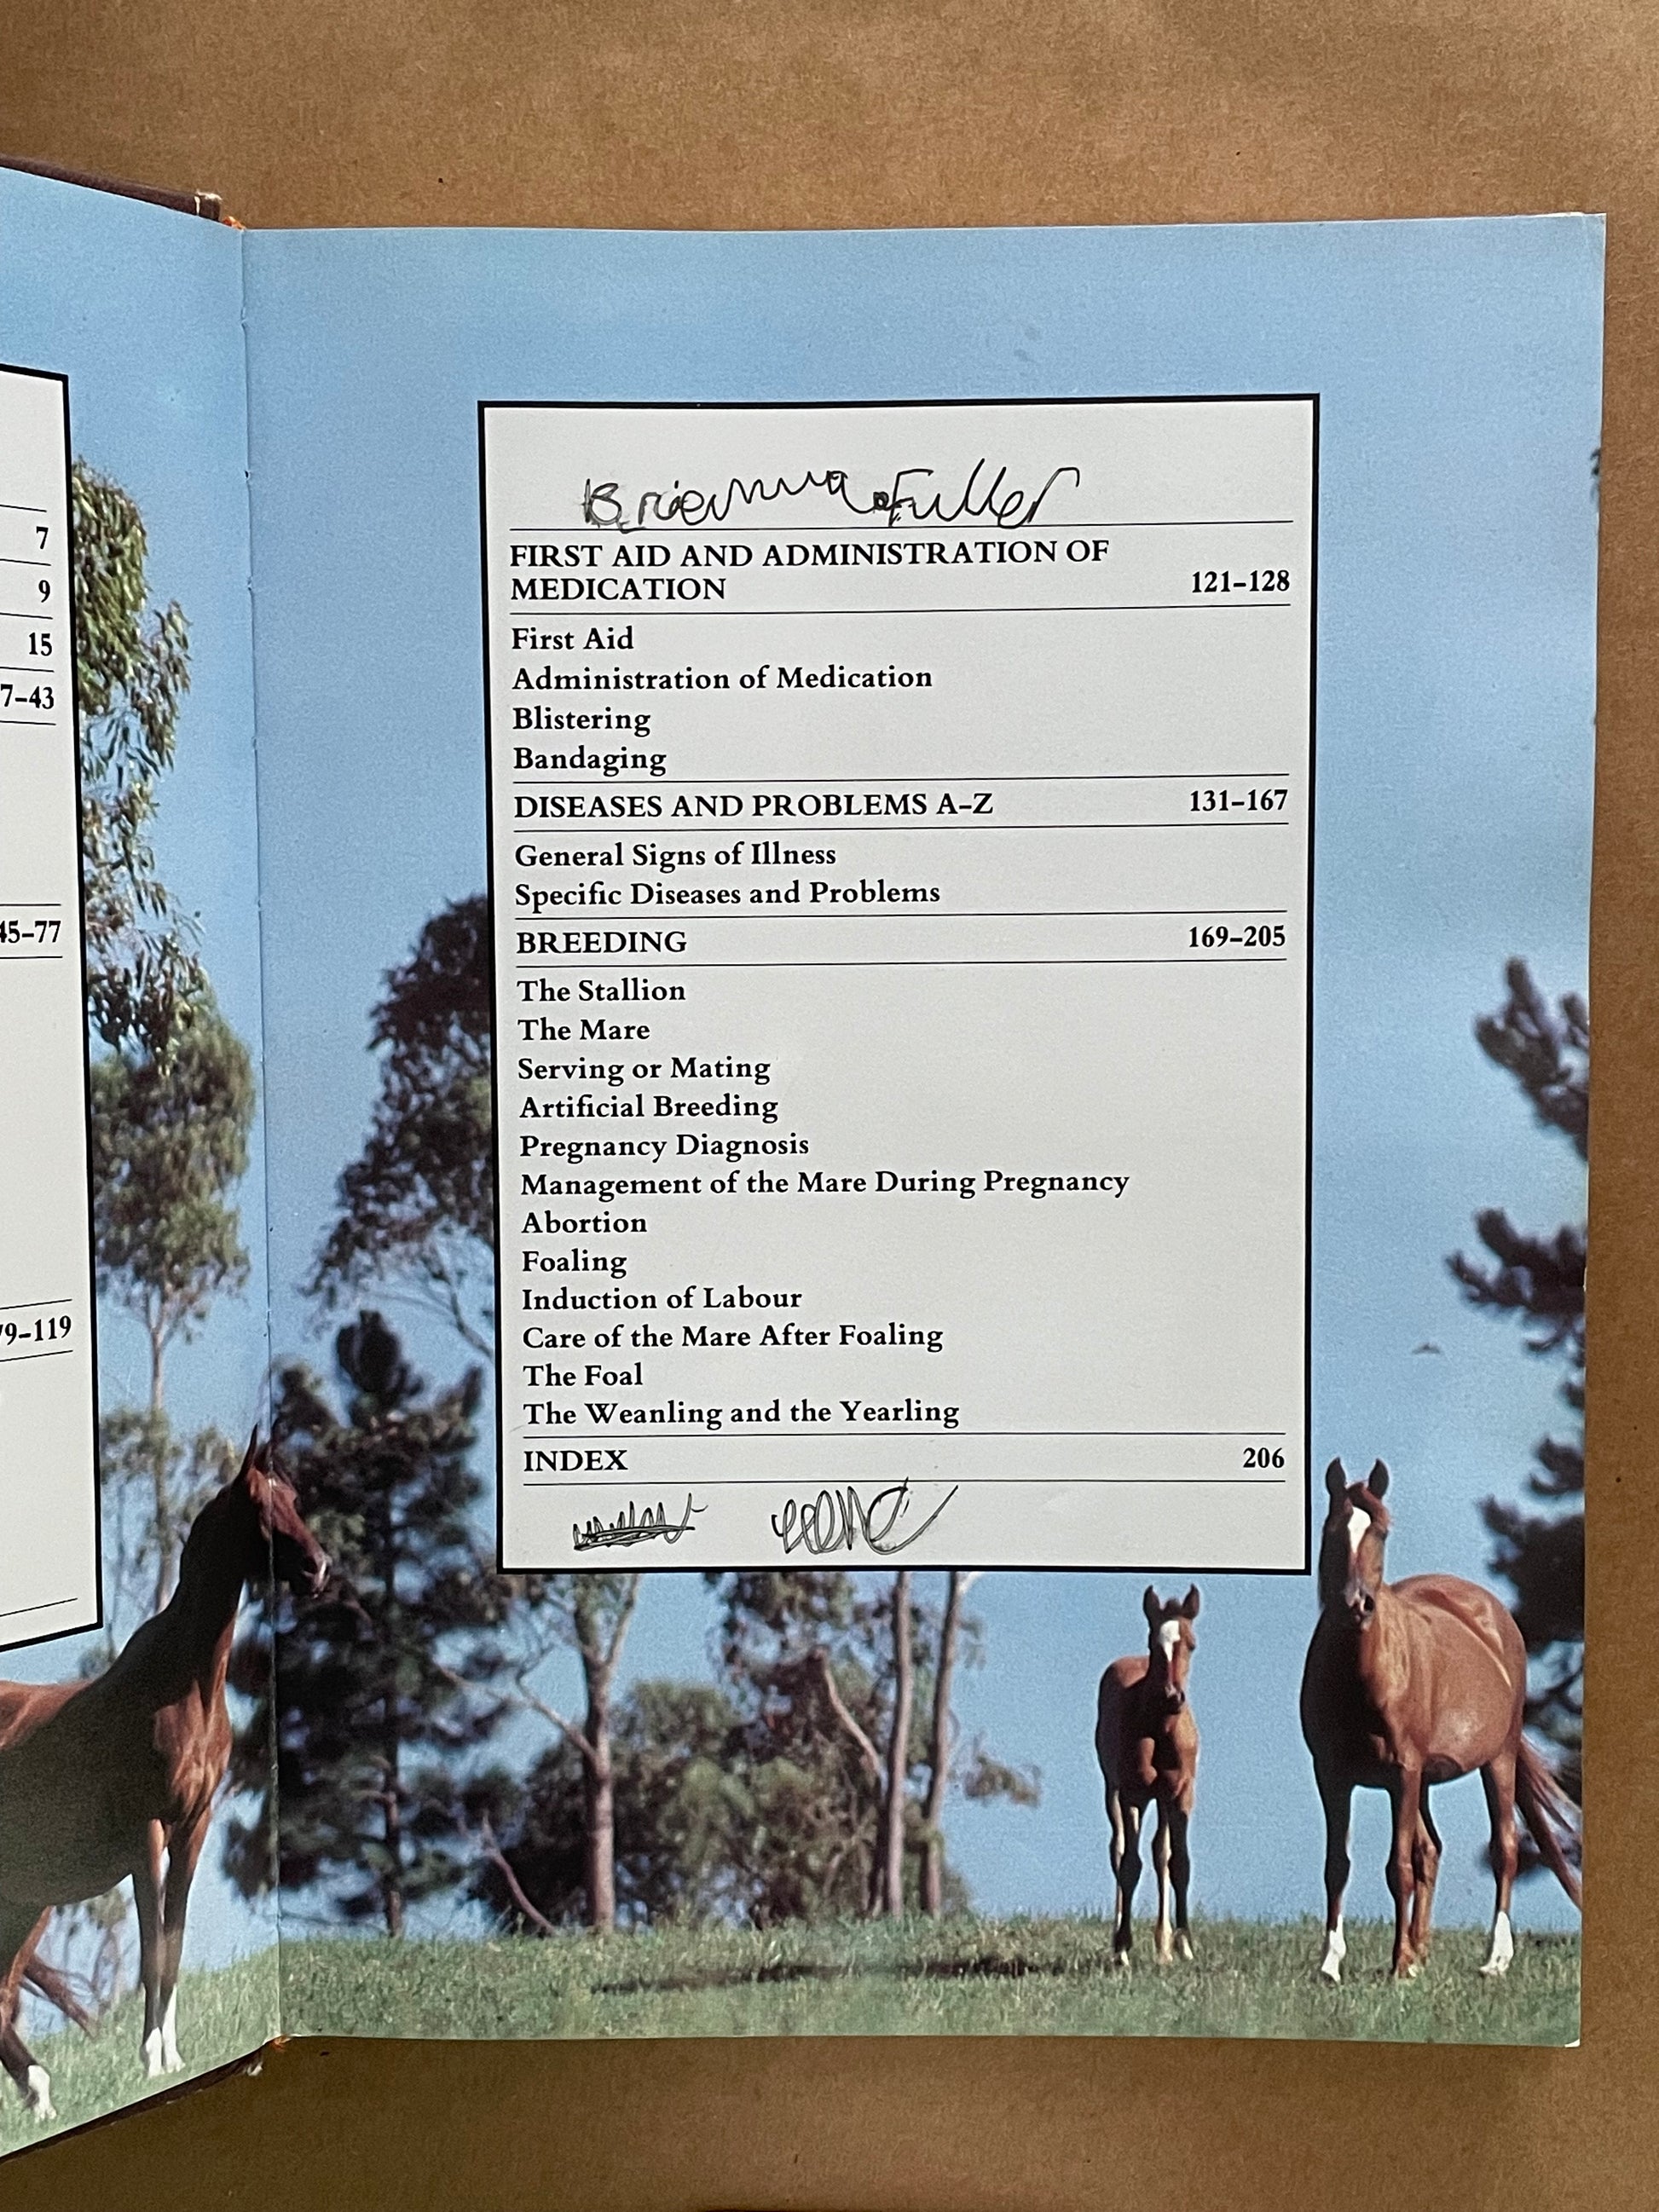 7
9
15
7–43
45–77
79–119
Brianna Fuller
FIRST AID AND ADMINISTRATION OF
MEDICATION 121–128
First Aid
Administration of Medication
Blistering
Bandaging
DISEASES AND PROBLEMS A–Z 131–167
General Signs of Illness
Specific Diseases and Problems
BREEDING 169–205
The Stallion
The Mare
Serving or Mating
Artificial Breeding
Pregnancy Diagnosis
Management of the Mare During Pregnancy
Abortion
Foaling
Induction of Labour
Care of the Mare After Foaling
The Foal
The Weanling and the Yearling
INDEX 206